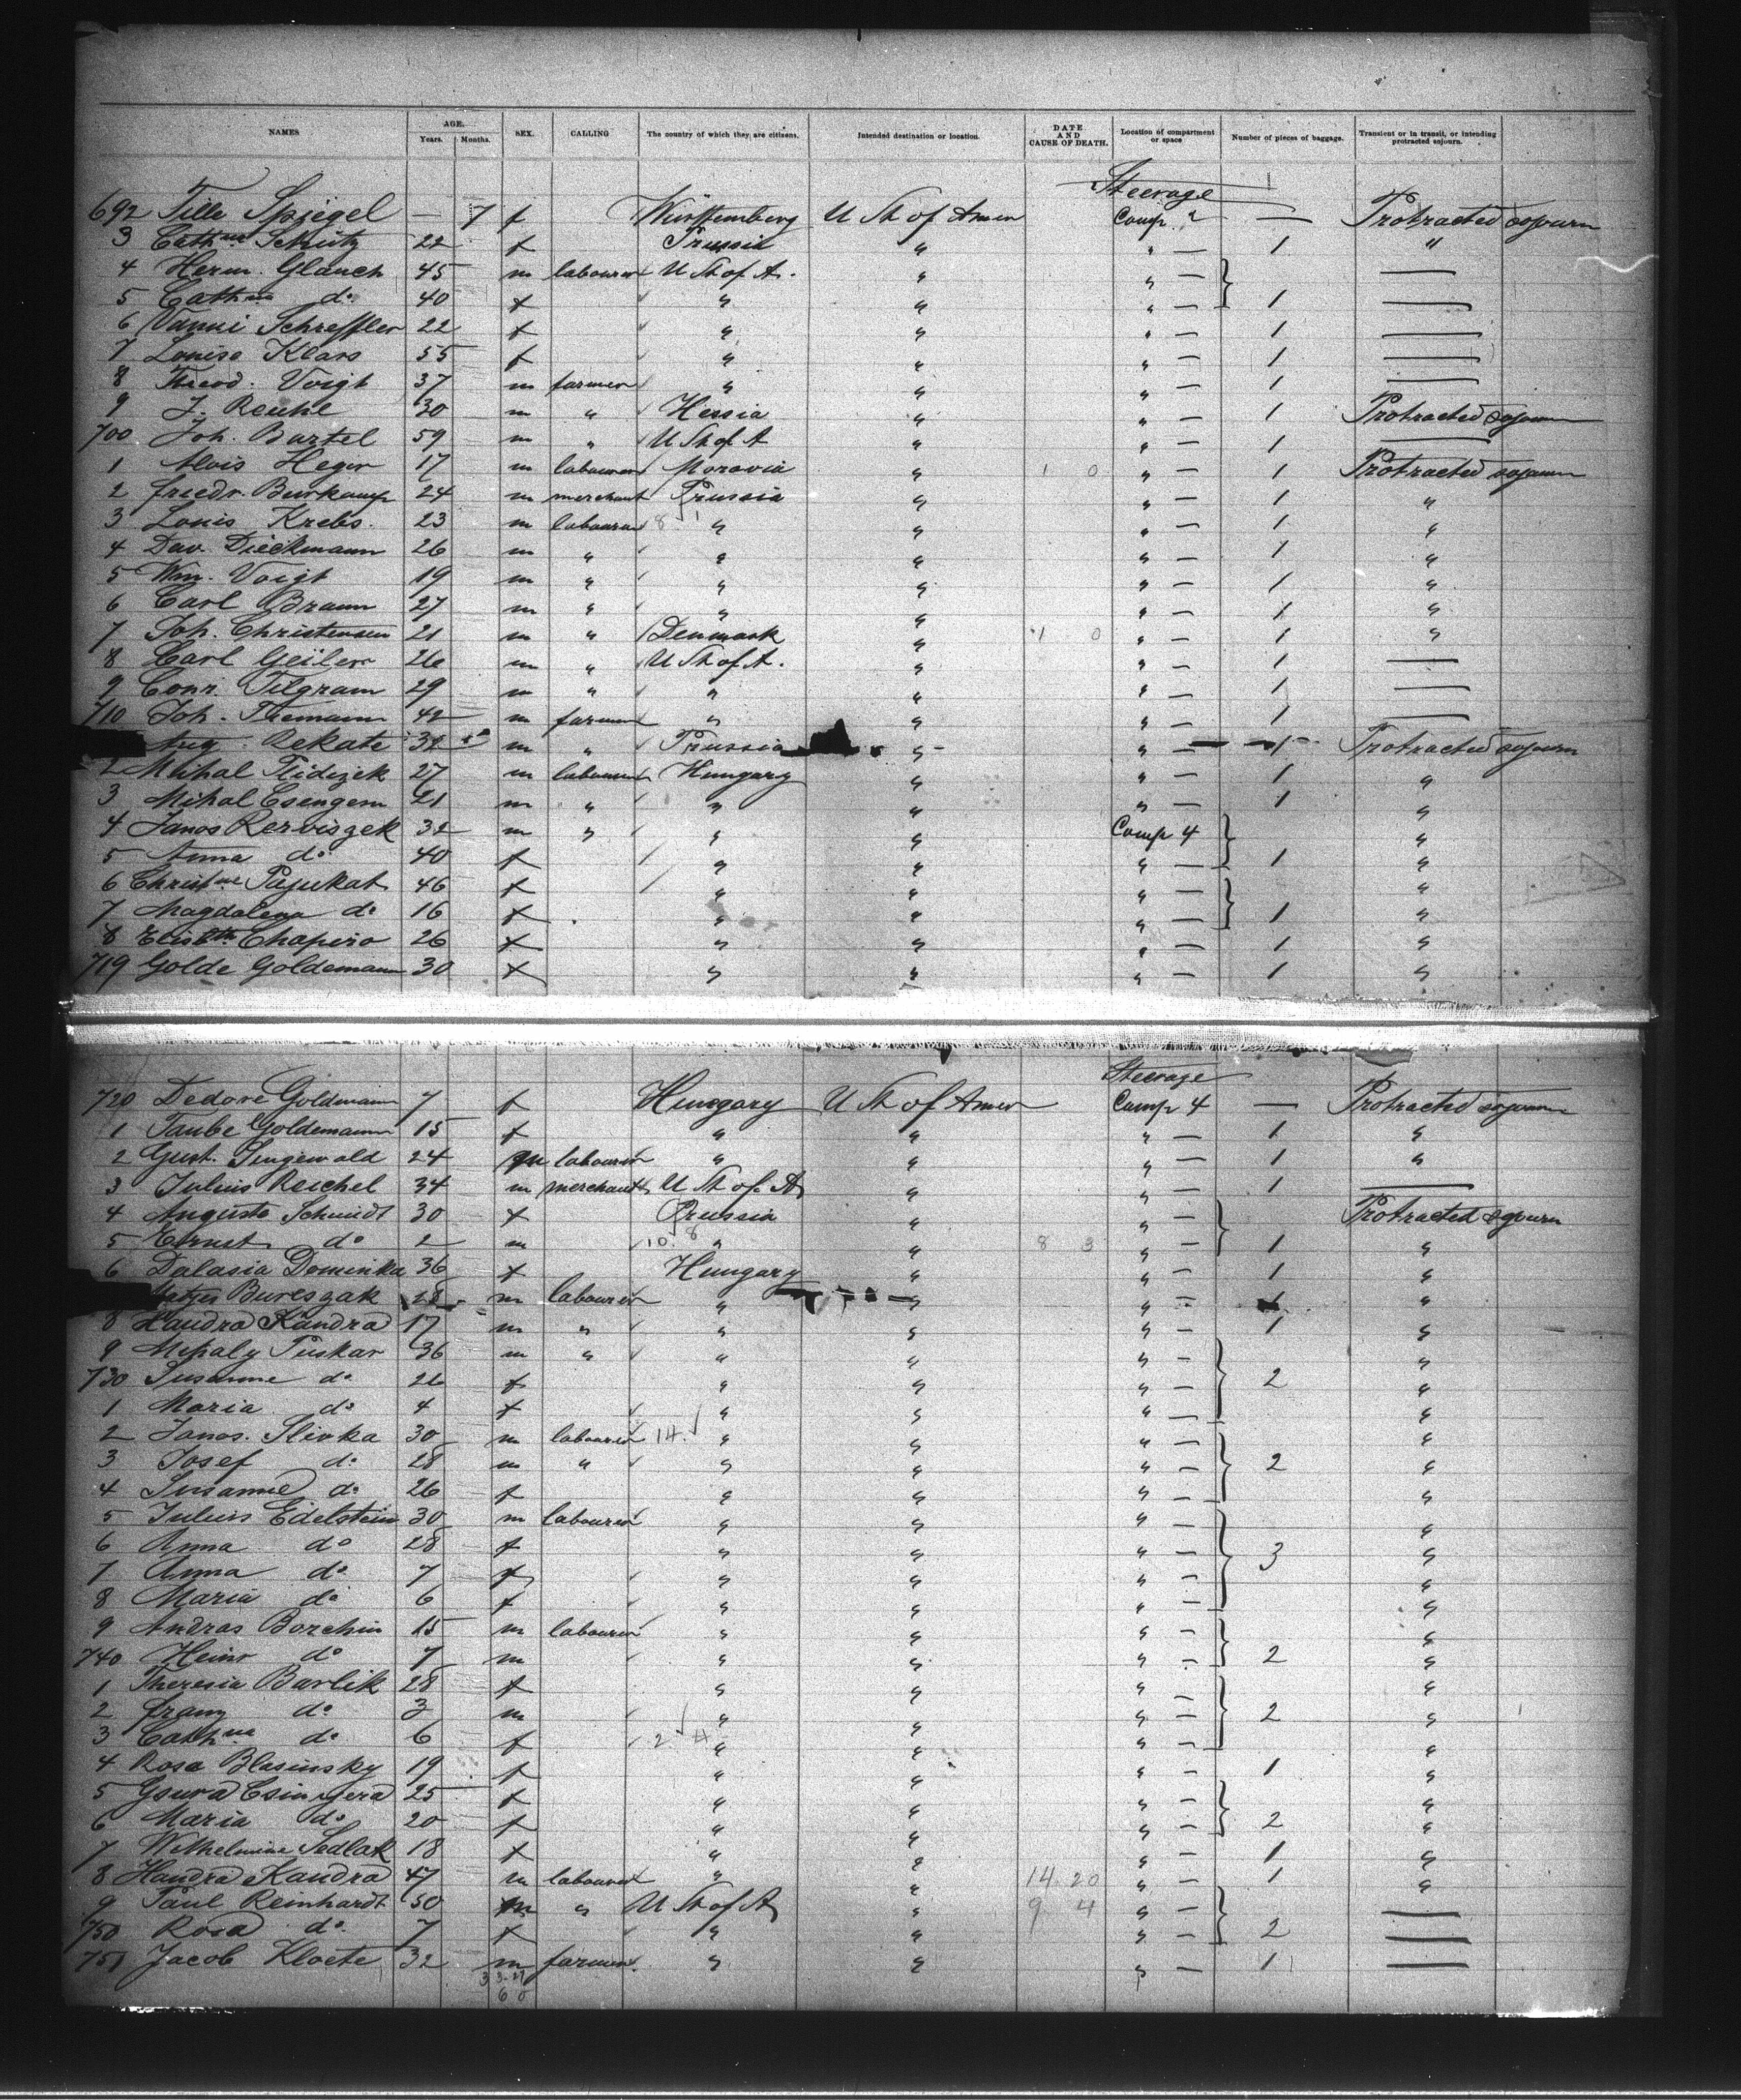 NAMES AGE. Years. Months. SEX. CALLING The country of which they are citizens. Intended destination or location. DATE AND CAUSE OF DEATH. Location of compartment or space Number of pieces of baggage. Transient or in transit, or intending protracted sojourn.
Steerage
692 Tille Spiegel — 7 f Württemberg U St of Amer Comp 2 — Protracted sojourn
3 Cathna Schütz 22 f Prussia " " — 1 "
4 Herm. Glauch 45 m labourer U St of A. " " — —
5 Cathna do 40 f " " " — 1 —
6 Vanni Schreffler 22 f " " " — 1 —
7 Louise Klars 55 f " " " — 1 —
8 Theod. Voigt 37 m farmer " " " — 1 —
9 J. Reuhl 30 m " Hessia " " — 1 Protracted sojourn
700 Joh. Bartel 59 m " U St of A " " — 1 —
1 Alois Heger 17 m labourer Moravia " 1 0 " — 1 Protracted sojourn
2 Friedr. Burkamp 24 m merchant Prussia " " — 1 "
3 Louis Krebs. 23 m labourer 8 1 " " " — 1 "
4 Dav. Dieckmann 26 m " " " " — 1 "
5 Wm. Voigt 19 m " " " " — 1 "
6 Carl Braun 27 m " " " " — 1 "
7 Joh. Christensen 21 m " Denmark " 1 0 " — 1 "
8 Carl Geiler 26 m " U St of A. " " — 1 —
9 Conr. Tilgram 29 m " " " " — 1 —
710 Joh. Themann 42 m farmer " " " — 1 —
Aug. Rekate 32 m " Prussia " " — 1 Protracted sojourn
2 Mihal 27 m labourer Hungary " " — 1 "
3 Mihal Csengern 21 m " " " " — 1 "
4 Janos Kerviszek 32 m " " " Comp 4 "
5 Anna do 40 f " " " — 1 "
6 Christne Pajukat 46 f " " " — "
7 Magdalena do 16 f " " " — 1 "
8 Elisbth Chapiro 26 f " " " — 1 "
719 Golde Goldemann 30 f " " " — 1 "
Steerage
720 Dedore Goldmann 7 f Hungary U St of Amer Comp 4 — Protracted sojourn
1 Taube Goldemann 15 f " " " — 1 "
2 Gust. Singewald 24 m labourer " " " — 1 "
3 Julius Reichel 34 m merchant U St of A " " — 1 —
4 Auguste Schmidt 30 f Prussia " " — Protracted sojourn
5 Ernst do 2 m 10 8 " " 8 3 " — 1 "
6 Dalasia Dominka 36 f Hungary " " — 1 "
Bureszak 28 m labourer " " " — 1 "
8 Handra Kandra 17 m " " " " — 1 "
9 Mihaly Puskar 36 m " " " " — "
730 Susanne do 26 f " " " — 2 "
1 Maria do 4 f " " " — "
2 Janos. Slivka 30 m labourer 14 " " " — "
3 Josef do 28 m " " " " — 2 "
4 Susanne do 26 f " " " — "
5 Julius Edelstein 30 m labourer " " " — "
6 Anna do 28 f " " " — 3 "
7 Anna do 7 f " " " — "
8 Maria do 6 f " " " — "
9 Andras Borchin 15 m labourer " " " — "
740 Heinr do 7 m " " " — 2 "
1 Theresia Barlik 28 f " " " — "
2 Franz do 3 m " " " — 2 "
3 Cathna do 6 f 2 4 " " " — "
4 Rosa Blasinsky 19 f " " " — 1 "
5 Gsura Csingera 25 f " " " — "
6 Maria do 20 f " " " — 2 "
7 Wilhelmine Sedlak 18 f " " " — 1 "
8 Handra Kandra 47 m labourer " " 14 20 " — 1 "
9 Paul Reinhardt 50 m " U St of A " 9 4 " — —
750 Rosa do 7 f " " " — 2 —
751 Jacob Kloete 32 m farmer " " " — 1 —
3 3-27
6 0